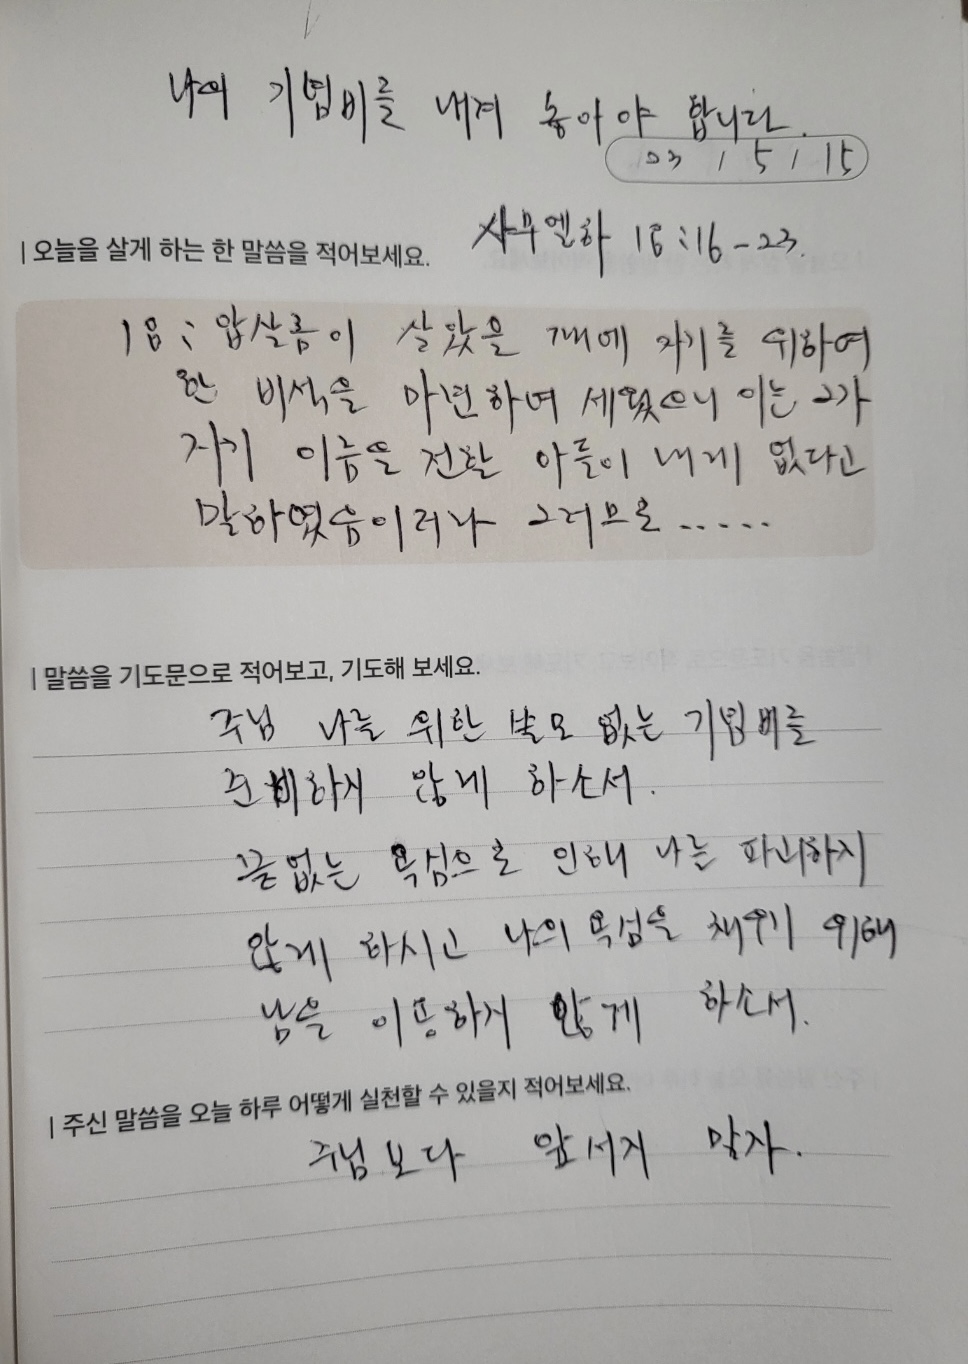 나의 기념비를 내려 놓아야 합니다.
23 / 5 / 15
사무엘하 18:16-23.
| 오늘을 살게 하는 한 말씀을 적어보세요.
18: 압살롬이 살았을 때에 자기를 위하여
한 비석을 마련하여 세웠으니 이는 그가
자기 이름을 전할 아들이 내게 없다고
말하였음이러라 그러므로.....
| 말씀을 기도문으로 적어보고, 기도해 보세요.
주님 나를 위한 쓸모 없는 기념비를
준비하지 않게 하소서.
끝없는 욕심으로 인해 나를 파괴하지
않게 하시고 나의 욕심을 채우기 위해
남을 이용하지 않게 하소서.
| 주신 말씀을 오늘 하루 어떻게 실천할 수 있을지 적어보세요.
주님보다 앞서지 말자.